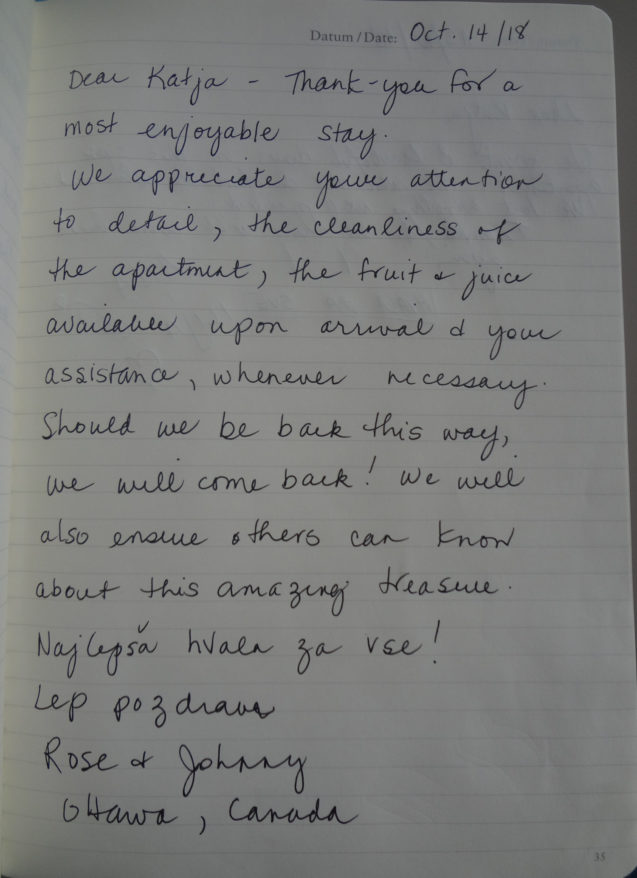 Datum / Date: Oct. 14 / 18
Dear Katja - Thank-you for a
most enjoyable stay.
We appreciate your attention
to detail, the cleanliness of
the apartment, the fruit & juice
available upon arrival & your
assistance, whenever necessary.
Should we be back this way,
we will come back! We will
also ensure others can know
about this amazing treasure.
Najlepša hvala za vse!
Lep pozdrav
Rose & Johnny
Ottawa, Canada
35